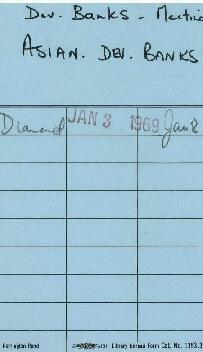 Dev. Banks - Meetin
ASIAN. DEV. BANKS
Diamond JAN 3 1969 Jan 8
Remington Rand Library Bureau Form Cat. No. 1153.1